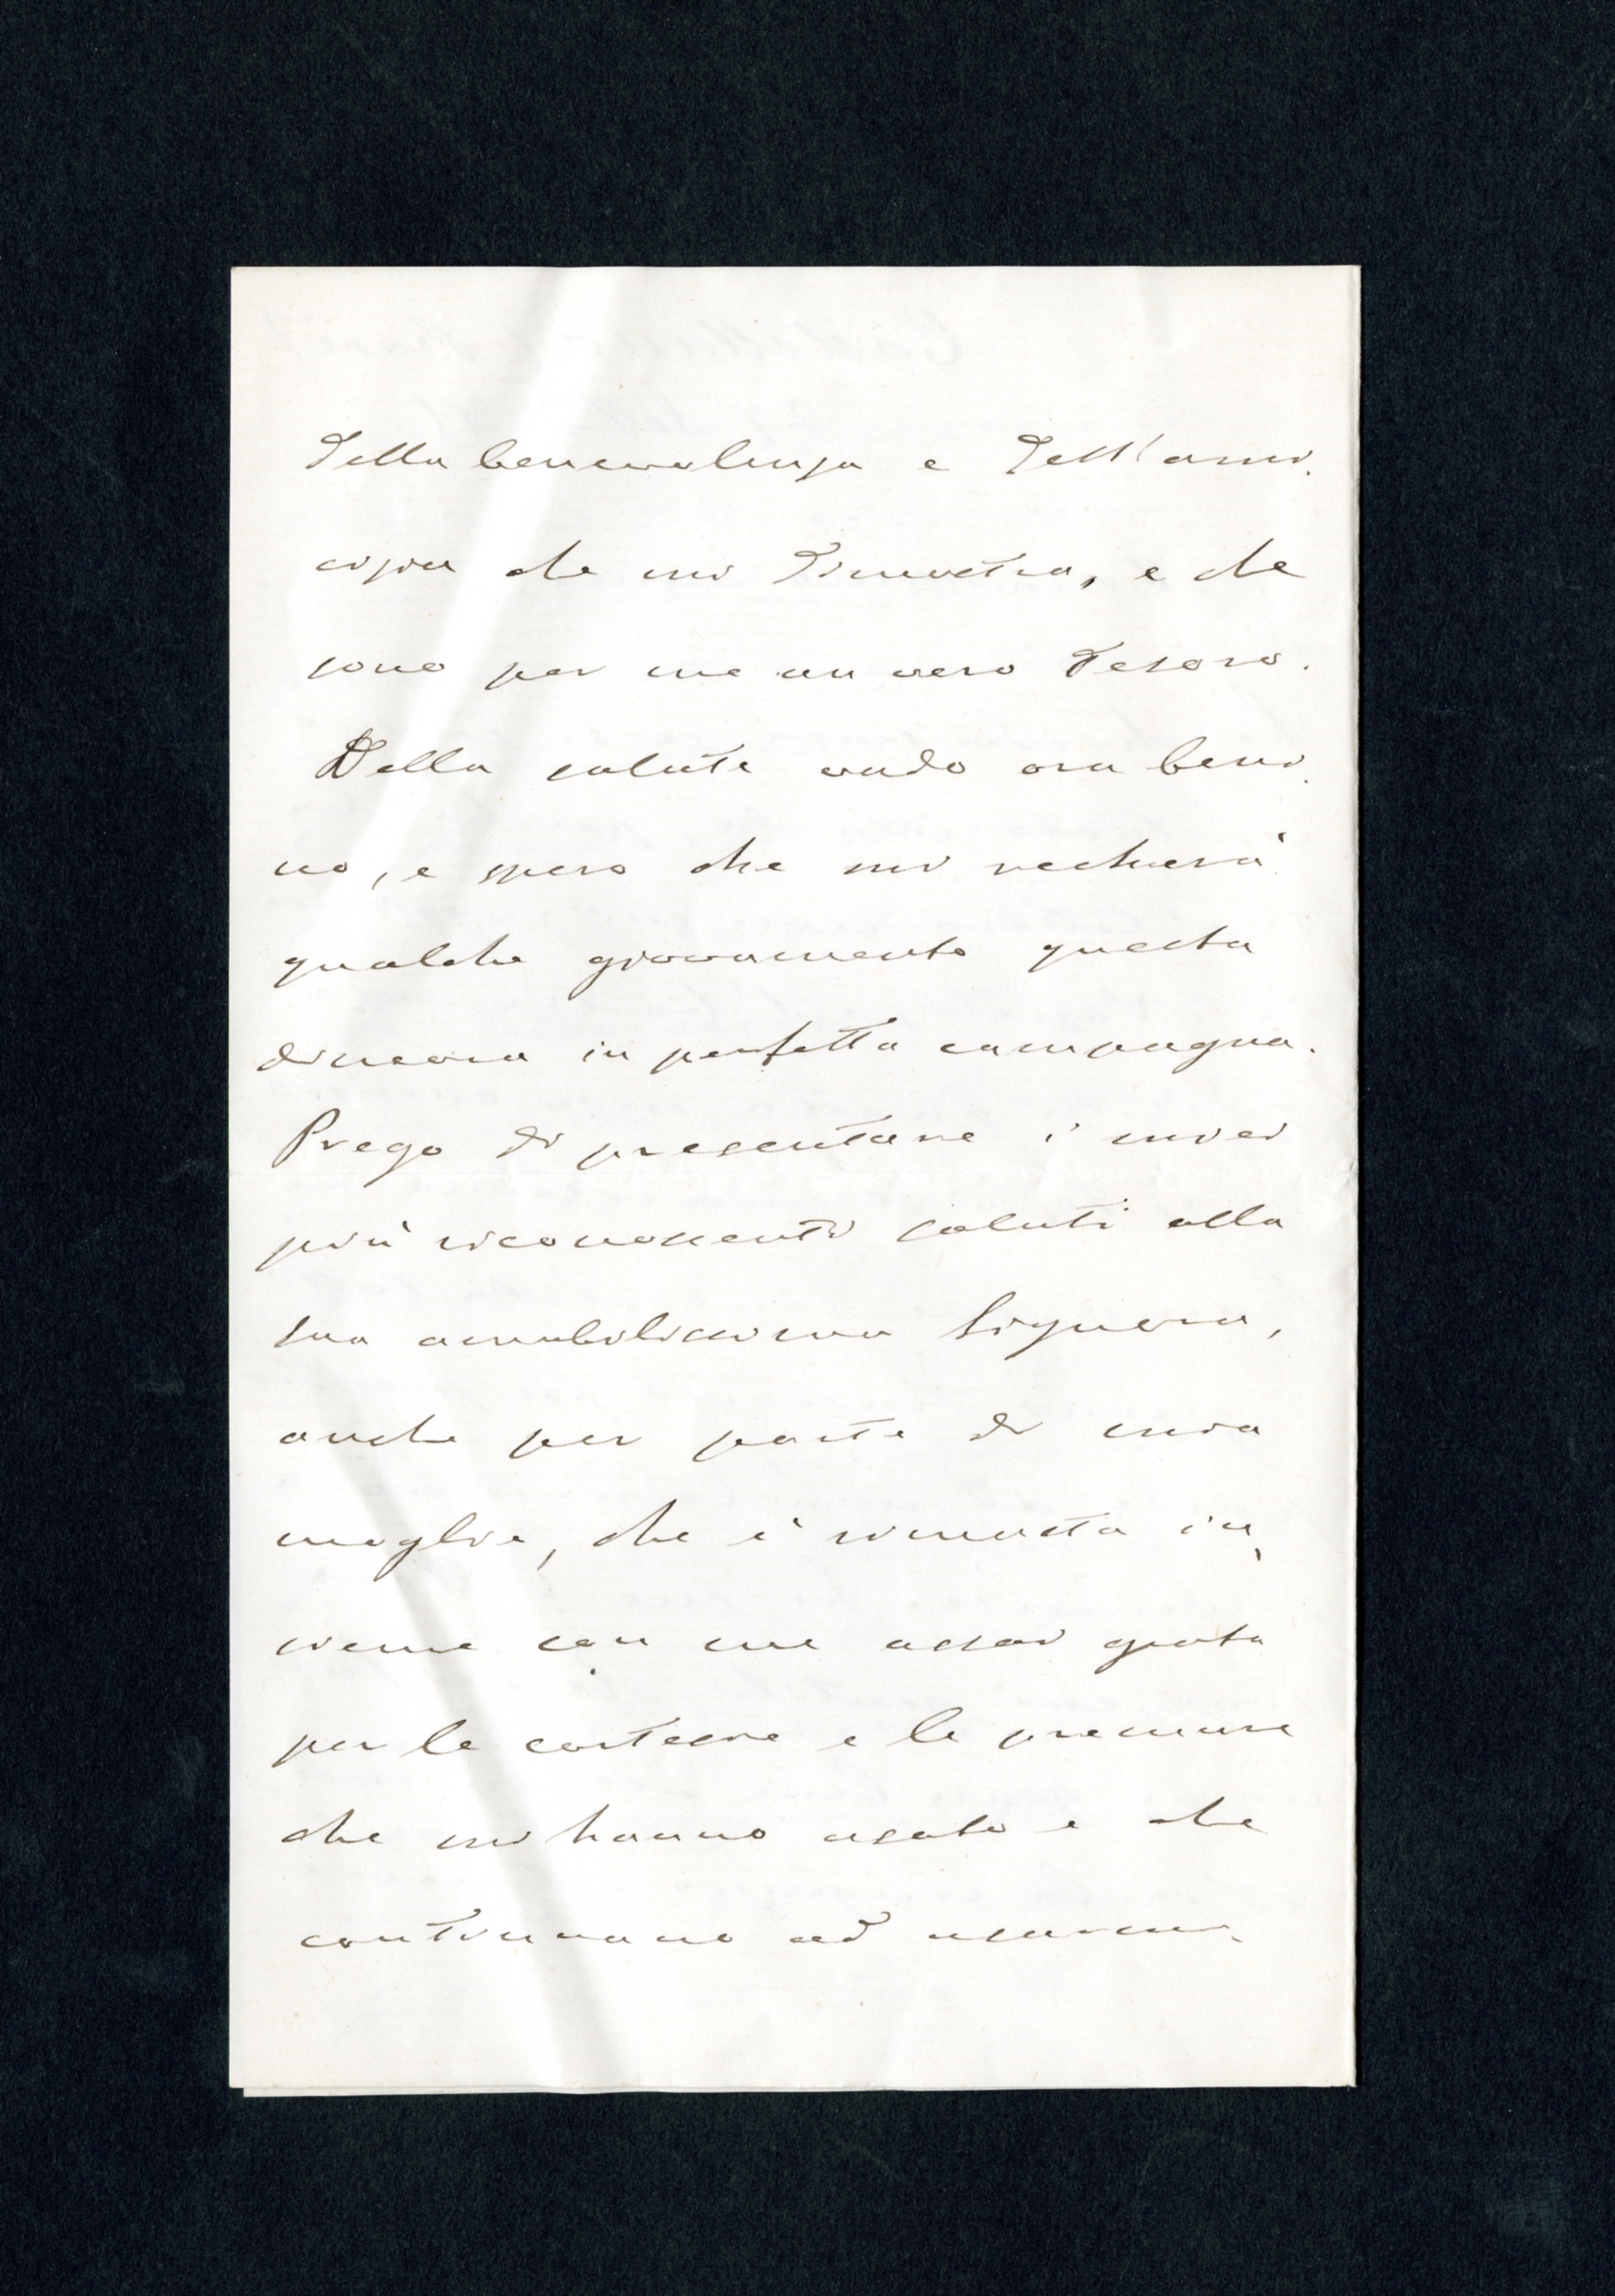 della benevolenza e dell'ami-
cizia che mi dimostra, e che
sono per me un vero tesoro.
Della salute vado ora beni-
no, e spero che mi recherà
qualche giovamento questa
dimora in perfetta campagna.
Prego di presentare i miei
più riconoscenti saluti alla
sua amabilissima Signora,
anche per parte di mia
moglie, che è rimasta in-
sieme con me assai grata
per le cortesie e le premure
che mi hanno usato e che
continuano ad usarmi.